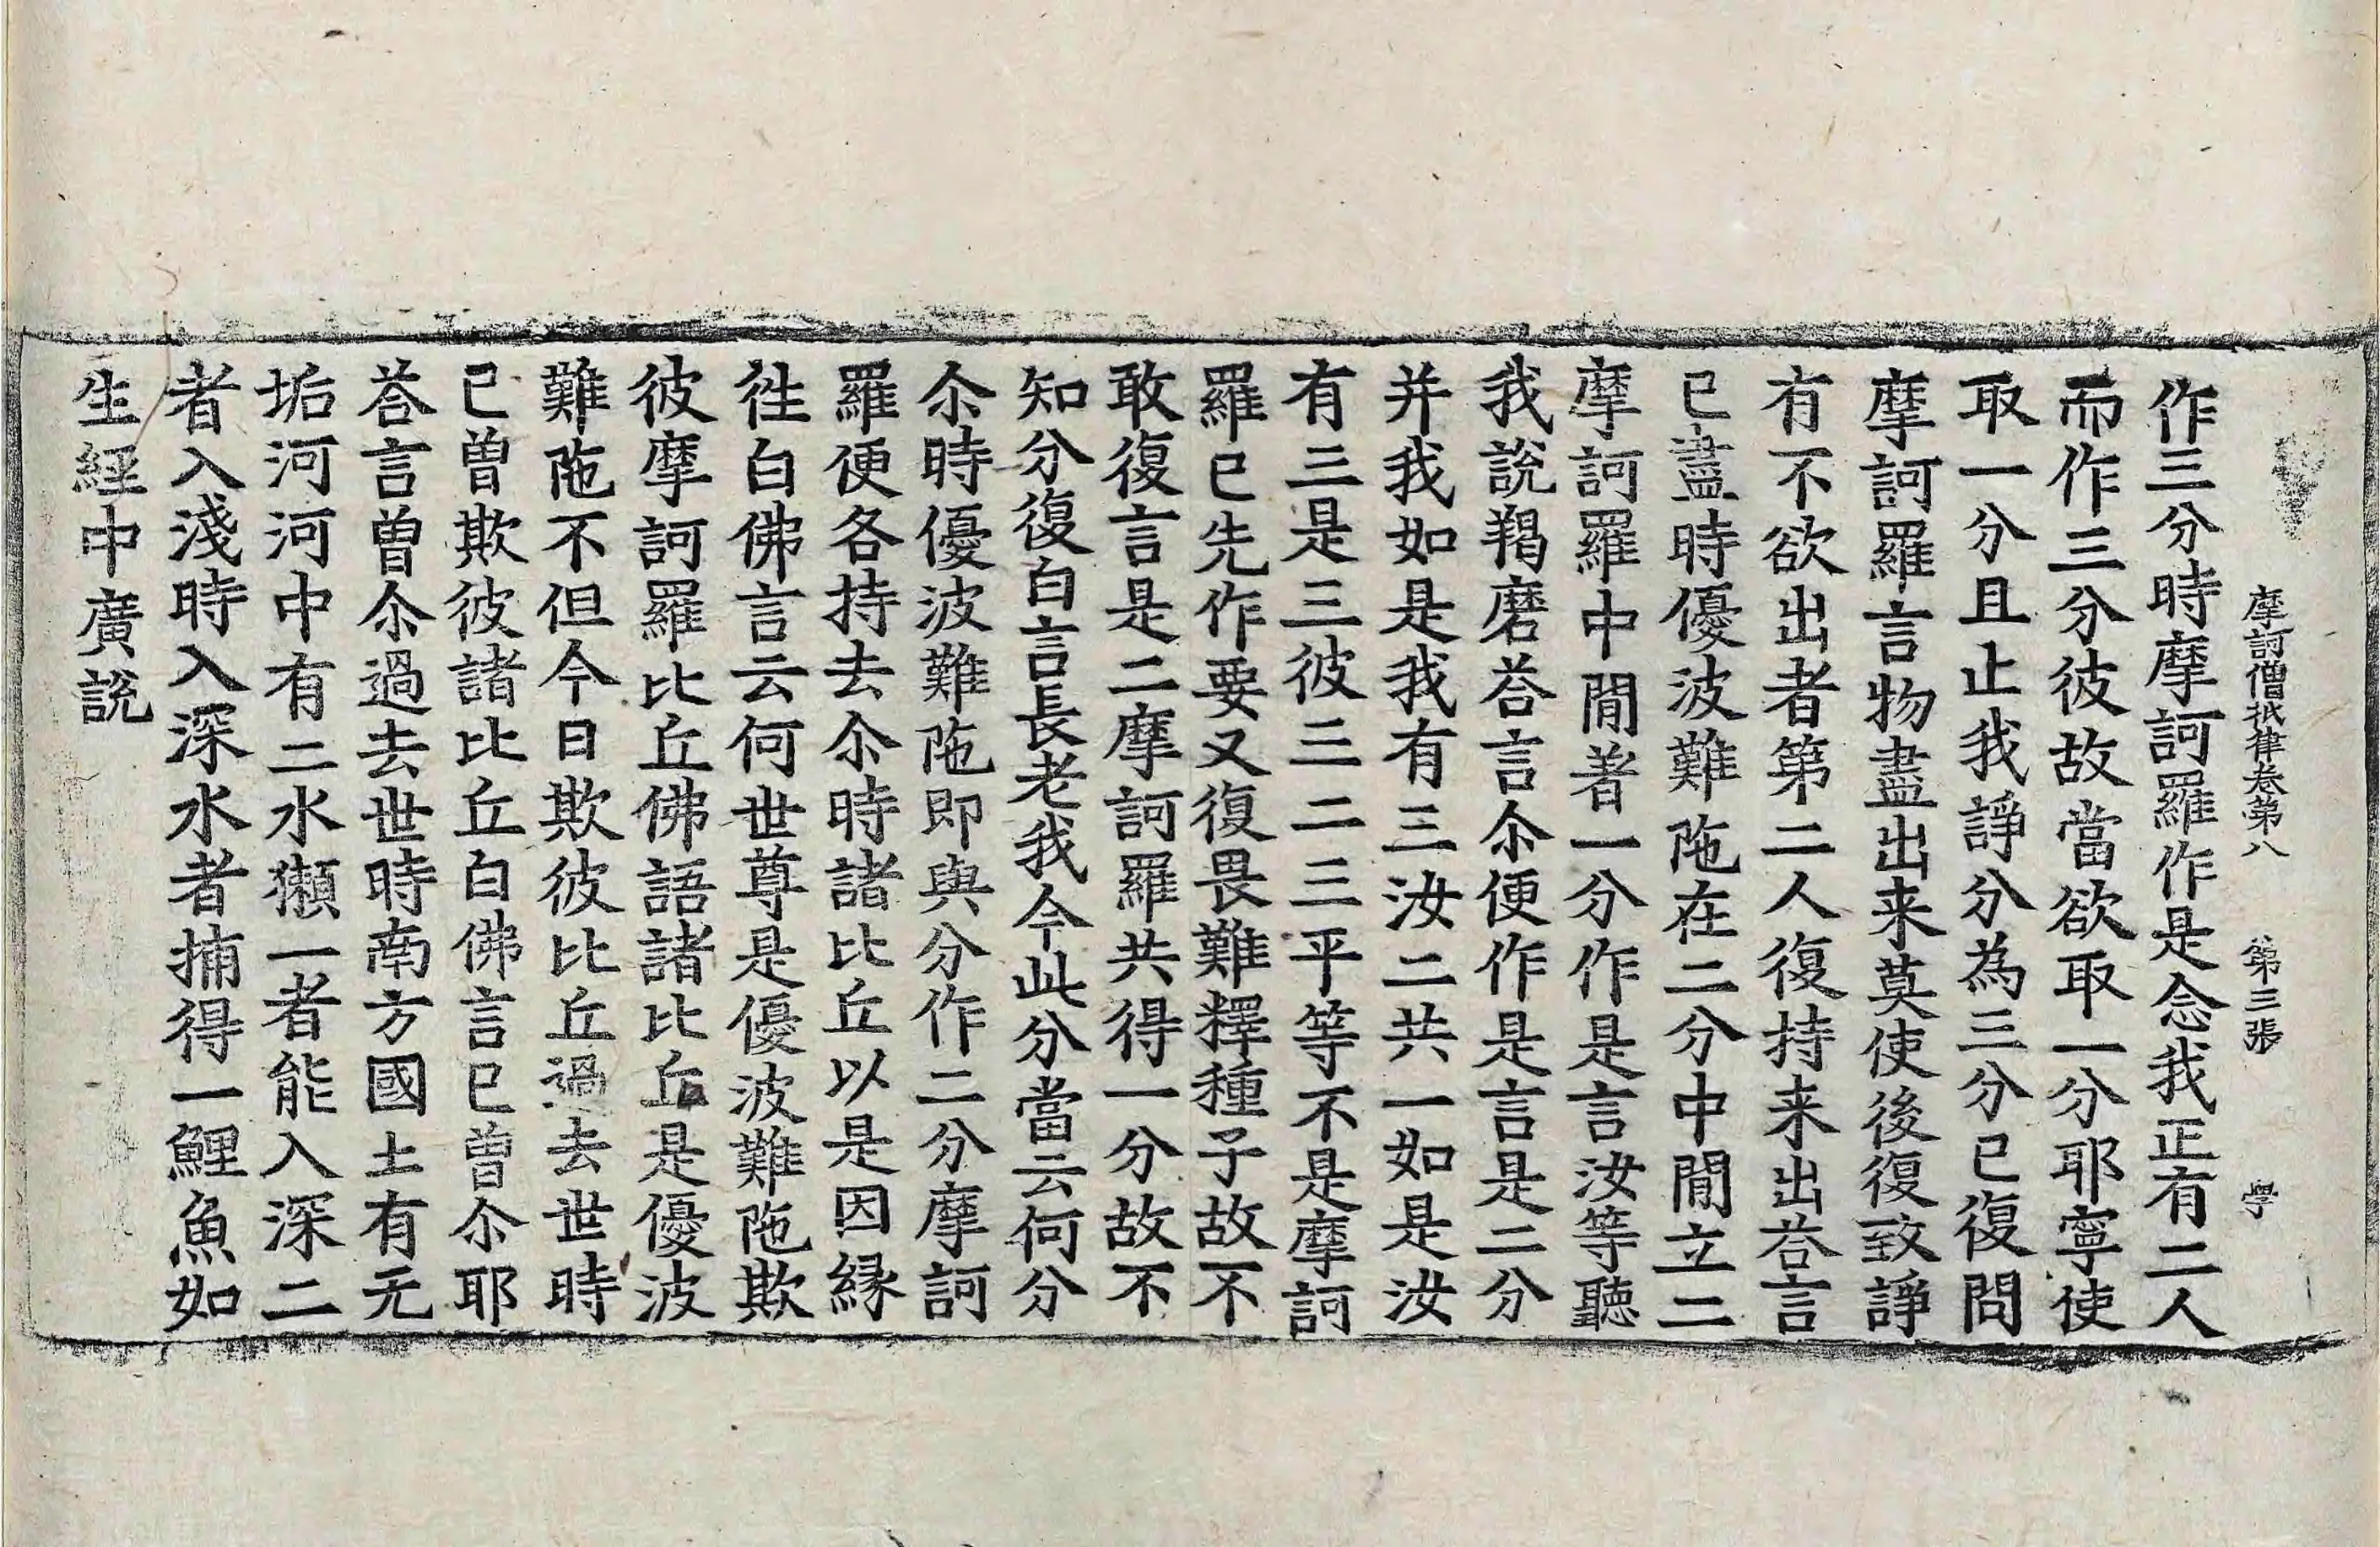 摩訶僧祇律卷第八　第三張　學
作三分時摩訶羅作是念我正有二人
而作三分彼故當欲取一分耶寧使
取一分且止我諍分為三分已復問
摩訶羅言物盡出来莫使後復致諍
有不欲出者第二人復持来出荅言
已盡時優波難陁在二分中間立二
摩訶羅中間著一分作是言汝等聽
我說羯磨荅言尒便作是言是二分
并我如是我有三汝二共一如是汝
有三是三彼三二三平等不是摩訶
羅已先作要又復畏難釋種子故不
敢復言是二摩訶羅共得一分故不
知分復白言長老我今此分當云何分
尒時優波難陁即與分作二分摩訶
羅便各持去尒時諸比丘以是因緣
徃白佛言云何世尊是優波難陁欺
彼摩訶羅比丘佛語諸比丘是優波
難陁不但今日欺彼比丘過去世時
已曾欺彼諸比丘白佛言已曾尒耶
荅言曾尒過去世時南方國土有无
垢河河中有二水獺一者能入深二
者入淺時入深水者捕得一鯉魚如
生經中廣說